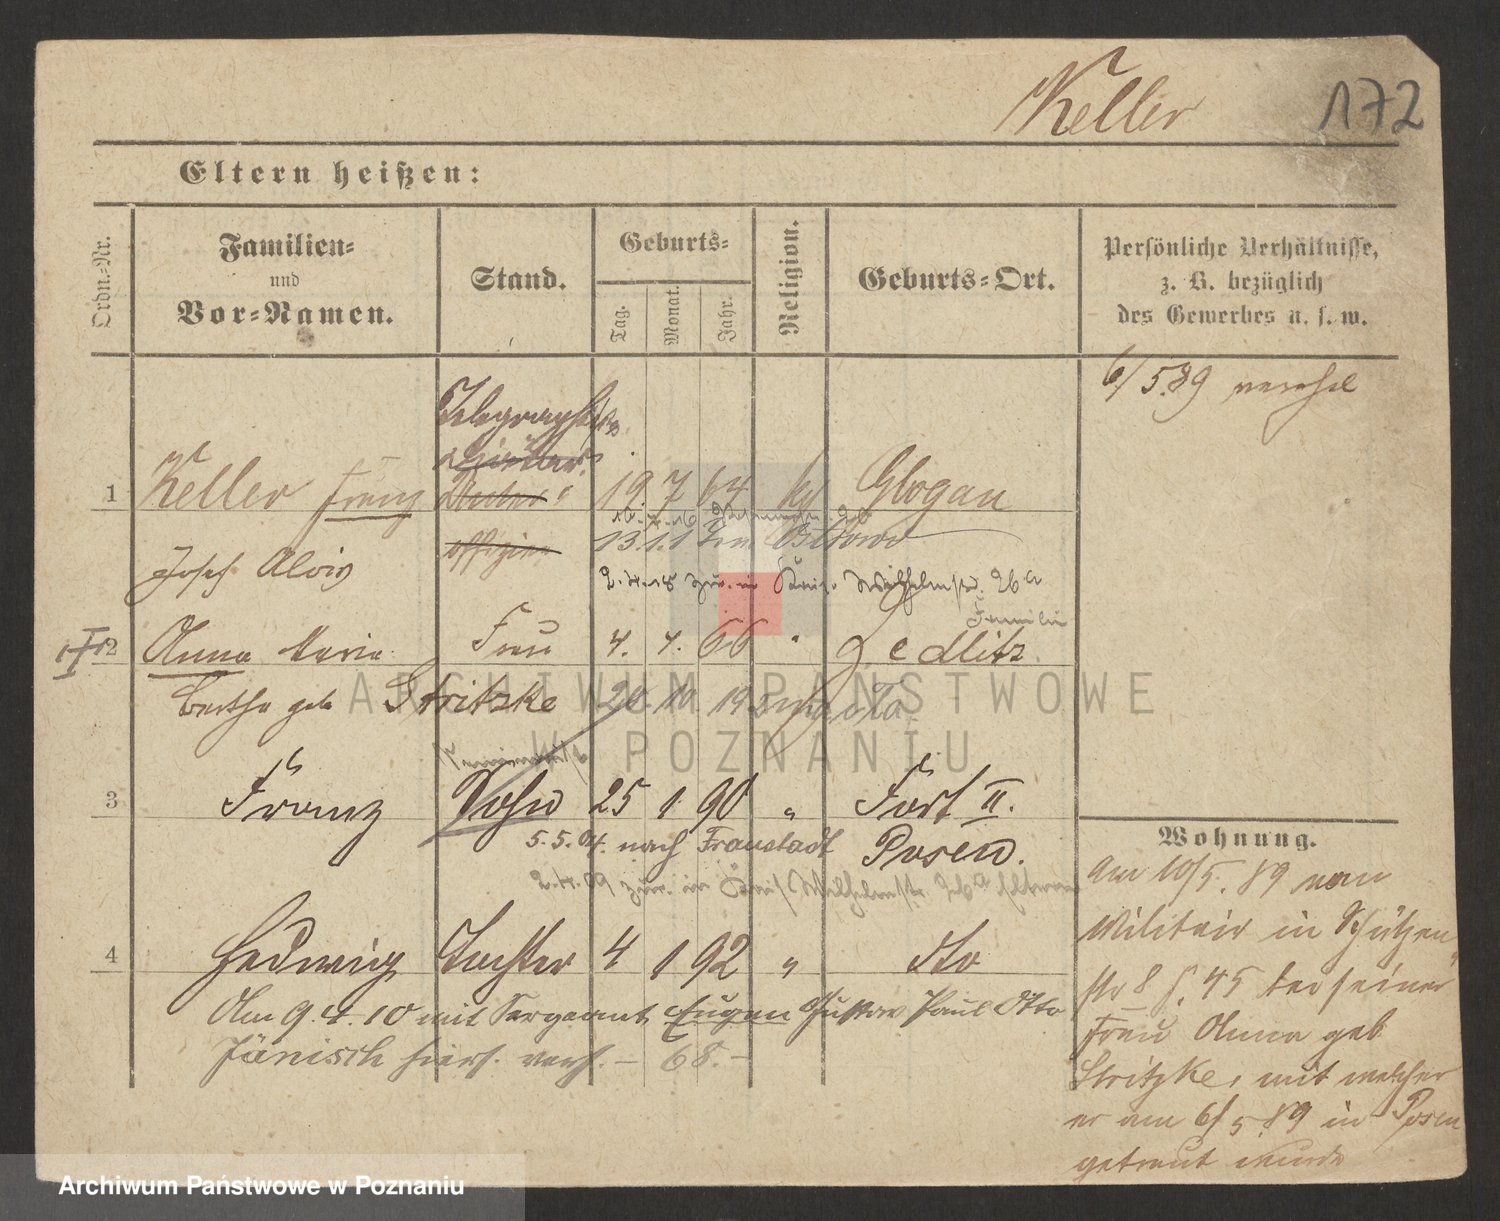 Keller 172
Eltern heißen:
Ordn.-Nr.
Familien-
und
Vor-Namen.
Stand.
Geburts-
Tag.
Monat.
Jahr.
Religion.
Geburts-Ort.
Persönliche Verhältnisse,
z. B. bezüglich
des Gewerbes u. s. w.
6/5.89 verehel
Telegraph
1 Keller Franz 19. 7 64 kf Glogau
Josef Alois offizier 13.1.1 Ostrowo
2.4.18 zur. in Kais. Wilhelmstr. 26a
Familie
2 Anna Maria Frau 4. 4. 66 " Zedlitz
Bertha geb Stritzke 20. 10. 19
3 Franz Sohn 25 1. 90 " Fort II.
5.5.04. nach Fraustadt Posen.
4 Hedwig Tochter 4 1 92 " dto
Am 9.4.10 mit Sergeant Eugen Gustav Paul Otto
Jänisch hiers. verh. – 68. –
Wohnung.
Am 10/5. 89 vom
Militair in Schützen
str 8 f. 45 bei seiner
Frau Anna geb
Stritzke, mit welcher
er am 6/5 89 in Posen
getraut wurde
ARCHIWUM PAŃSTWOWE
W POZNANIU
Archiwum Państwowe w Poznaniu